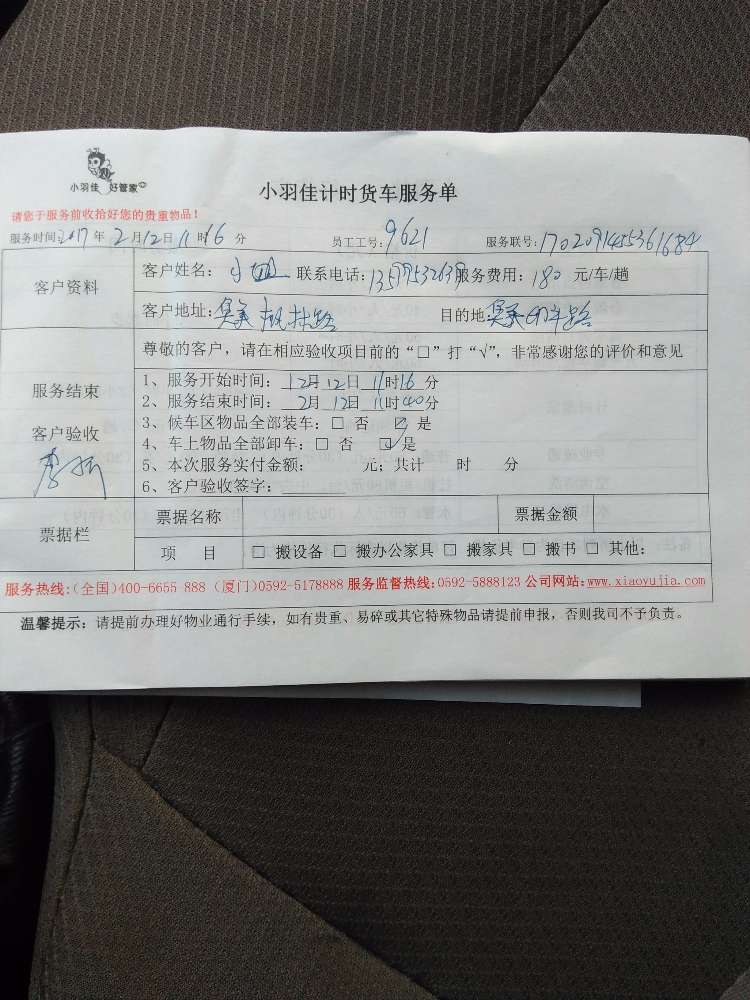 小羽佳 好管家
小羽佳计时货车服务单
请您于服务前收拾好您的贵重物品！
服务时间：2017年2月12日11时16分 员工工号：9621 服务联号：1702091455361684
客户资料
客户姓名：小姐 联系电话： 服务费用：180 元/车/趟
客户地址： 目的地：
尊敬的客户，请在相应验收项目前的“□”打“√”，非常感谢您的评价和意见
服务结束
客户验收
1、服务开始时间：12月12日11时16分
2、服务结束时间：2月12日11时40分
3、候车区物品全部装车：□ 否 ☑ 是
4、车上物品全部卸车：□ 否 ☑ 是
5、本次服务实付金额： 元；共计 时 分
6、客户验收签字：
票据栏
票据名称 票据金额
项 目 □ 搬设备 □ 搬办公家具 □ 搬家具 □ 搬书 □ 其他：
服务热线:(全国)400-6655 888 (厦门)0592-5178888 服务监督热线:0592-5888123 公司网站:www.xiaoyujia.com
温馨提示：请提前办理好物业通行手续，如有贵重、易碎或其它特殊物品请提前申报，否则我司不予负责。